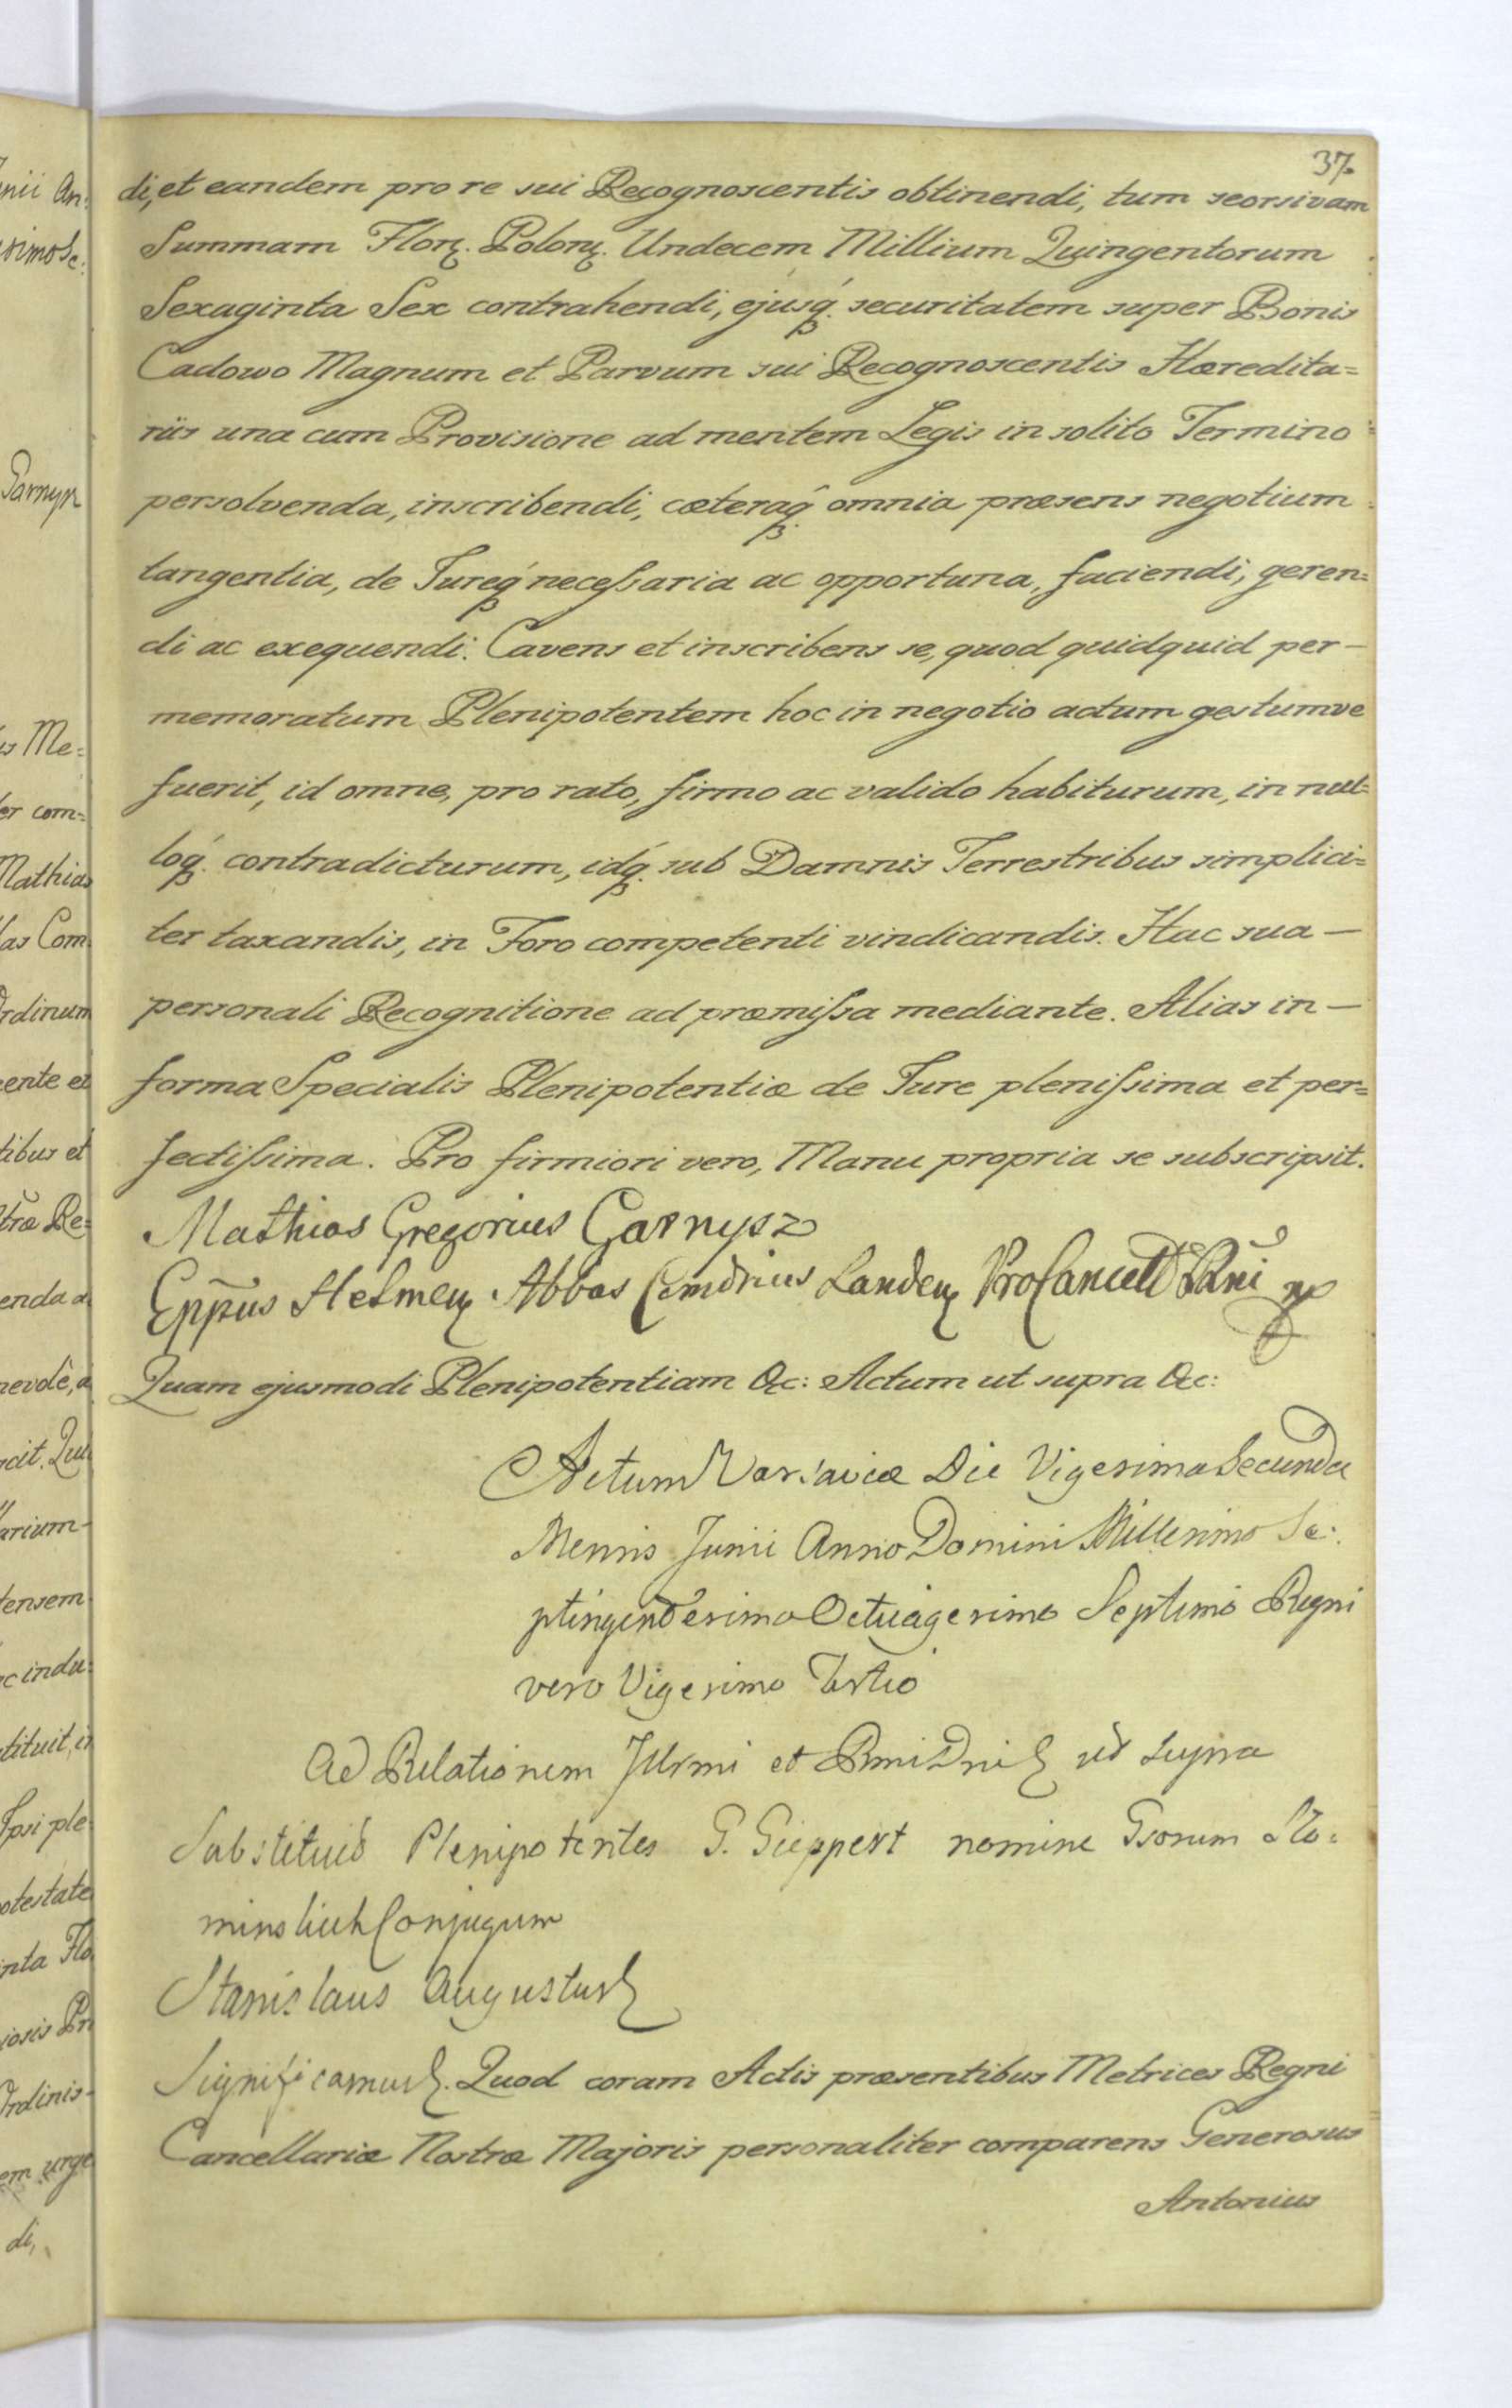 37.
di, et eandem pro re sui Recognoscentis obtinendi, tum seorsivam
Summam Florꝝ. Polonꝝ. Undecem Millium Quingentorum
Sexaginta Sex contrahendi, ejusq́. securitatem super Bonis
Cadowo Magnum et Parvum sui Recognoscentis Hæredita=
riis una cum Provisione ad mentem Legis in solito Termino
persolvenda, inscribendi, cæteraq́. omnia præsens negotium
tangentia, de Jureq́ neceſsaria ac opportuna, faciendi, geren=
di ac exequendi. Cavens et inscribens se, quod quidquid per–
memoratum Plenipotentem hoc in negotio actum gestumve
fuerit, id omne, pro rato, firmo ac valido habiturum, in nul=
loq́. contradicturum, idq́. sub Damnis Terrestribus simplici=
ter taxandis, in Foro competenti vindicandis. Hac sua –
personali Recognitione ad præmiſsa mediante. Alias in –
forma Specialis Plenipotentiæ de Jure pleniſsima et per=
fectiſsima. Pro firmiori vero, Manu propria se subscripsit.
Mathias Gregorius Garnysz
Eppus Helmen Abbas Comdrius Landen ProCancell Rni mp
Quam ejusmodi Plenipotentiam &c: Actum ut supra &c:
Actum Varsaviæ Die Vigesima Secunda
Mensis Junii Anno Domini Millesimo Se:
ptingentesimo Octuagesimo Septimo Regni
vero Vigesimo Tertio
Ad Relationem Jllrmi et Rmi Dni ut supra
Substituit Plenipotentes G. Gieppert nomine Gsorum Sło:
minskich Conjugum
Stanislaus Augustus
Significamus. Quod coram Actis præsentibus Metrices Regni
Cancellariæ Nostræ Majoris personaliter comparens Generosus
Antonius